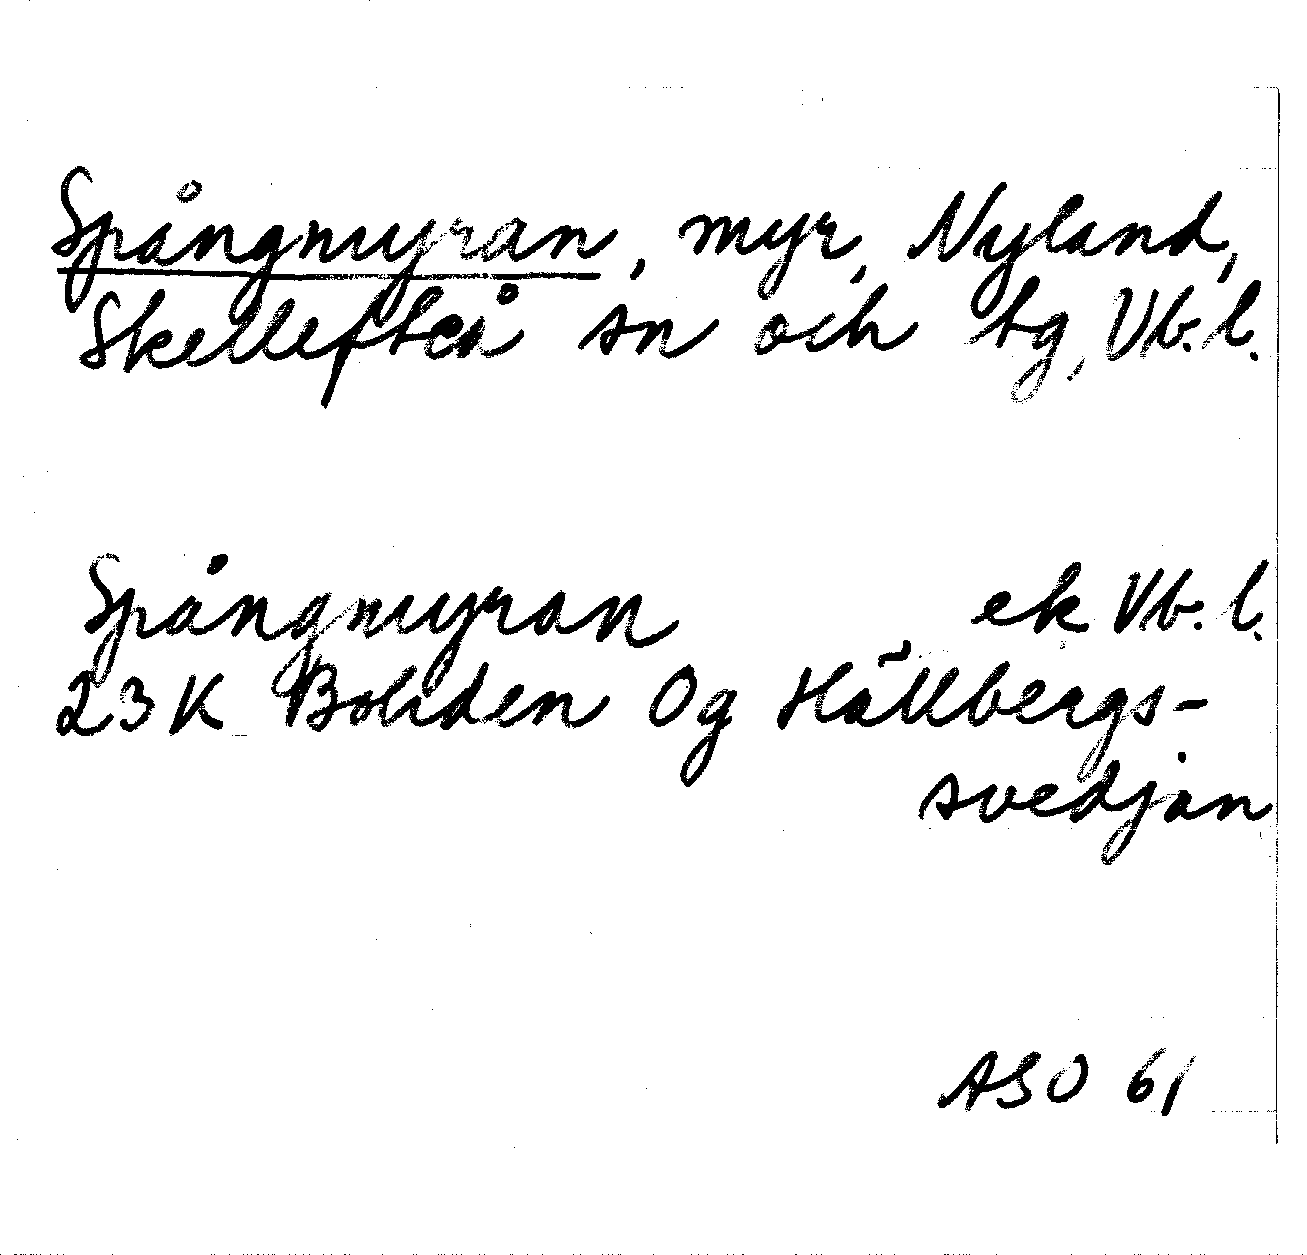 Spångmyran, myr, Nyland,
Skellefteå sn och tg, Vb. l.
Spångmyran ek Vb. l.
23K Boliden Og Hällbergs-
svedjan
ASO 61